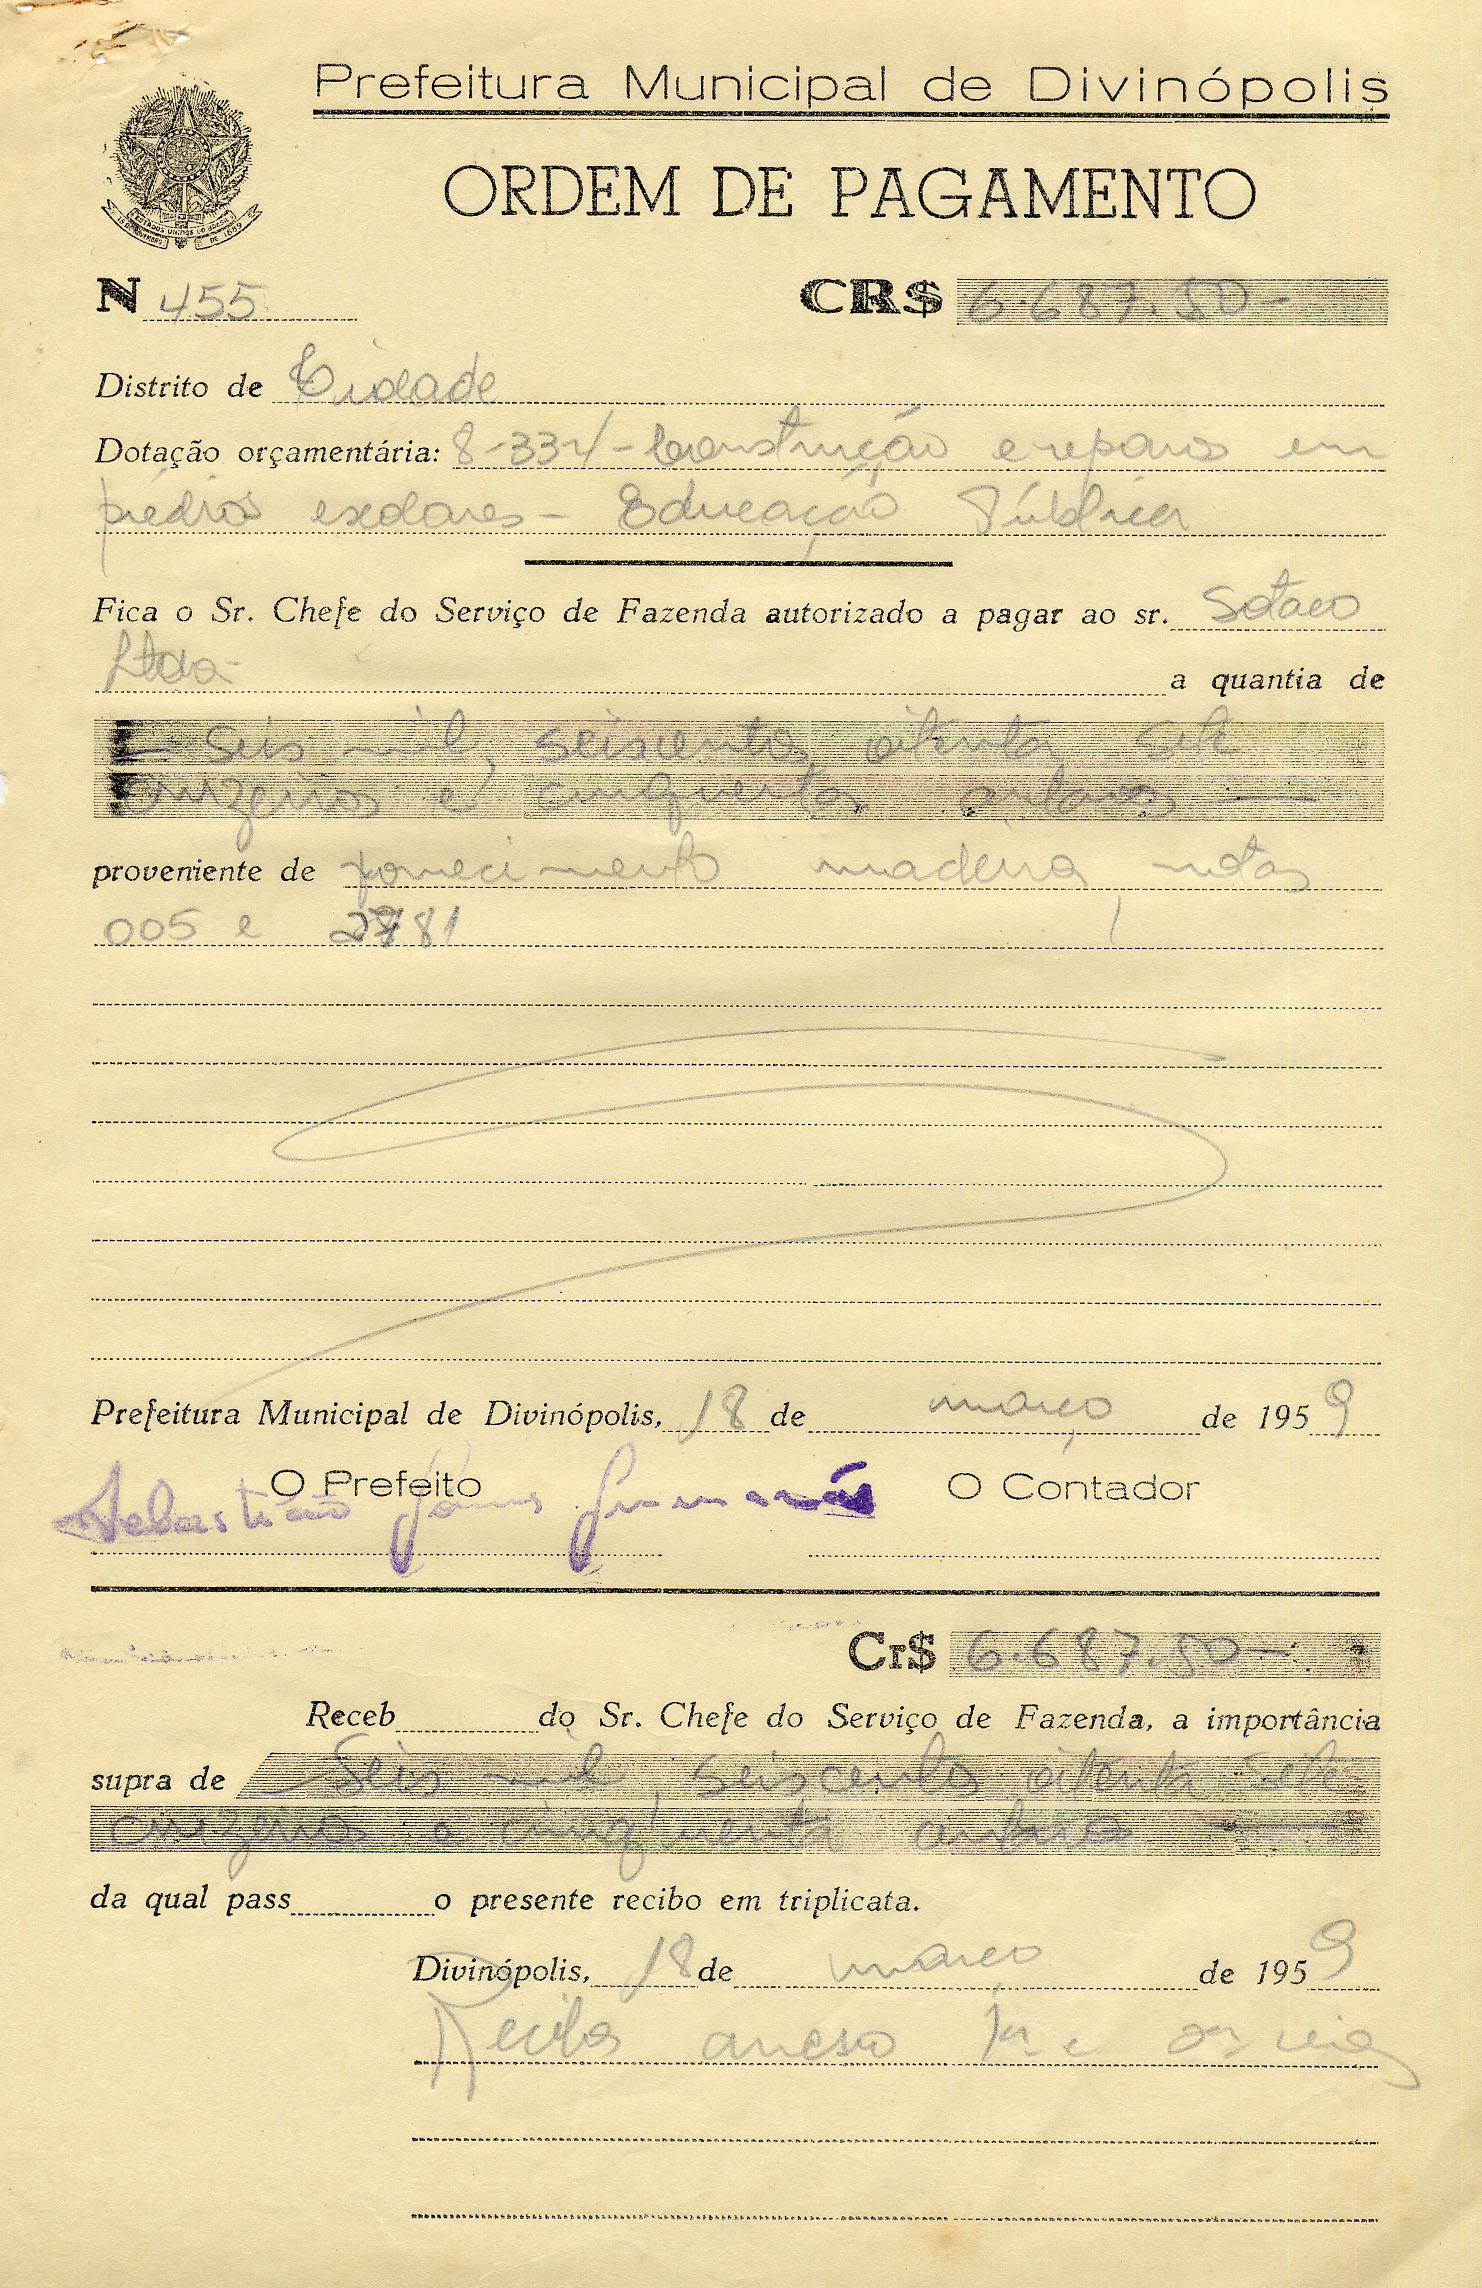 Prefeitura Municipal de Divinópolis
ORDEM DE PAGAMENTO
N 455 CR$ 6.687.50-
Distrito de Cidade
Dotação orçamentária: 8-334- Construção e reparos em
prédios escolares - Educação Pública
Fica o Sr. Chefe do Serviço de Fazenda autorizado a pagar ao sr. Sotaco
Ltda- a quantia de
- Seis mil, seiscentos oitenta sete
cruzeiros e cinquenta centavos -
proveniente de fornecimento madeira, notas
005 e 81
Prefeitura Municipal de Divinópolis, 18 de março de 1959
O Prefeito O Contador
Sebastião Gomes Guimarães
Cr$ 6.687.50-
Receb do Sr. Chefe do Serviço de Fazenda, a importância
supra de - Seis mil, seiscentos oitenta sete
cruzeiros e cinquenta centavos -
da qual pass o presente recibo em triplicata.
Divinópolis, 18 de março de 1959
Recibo anexo 1ª e 2ª vias